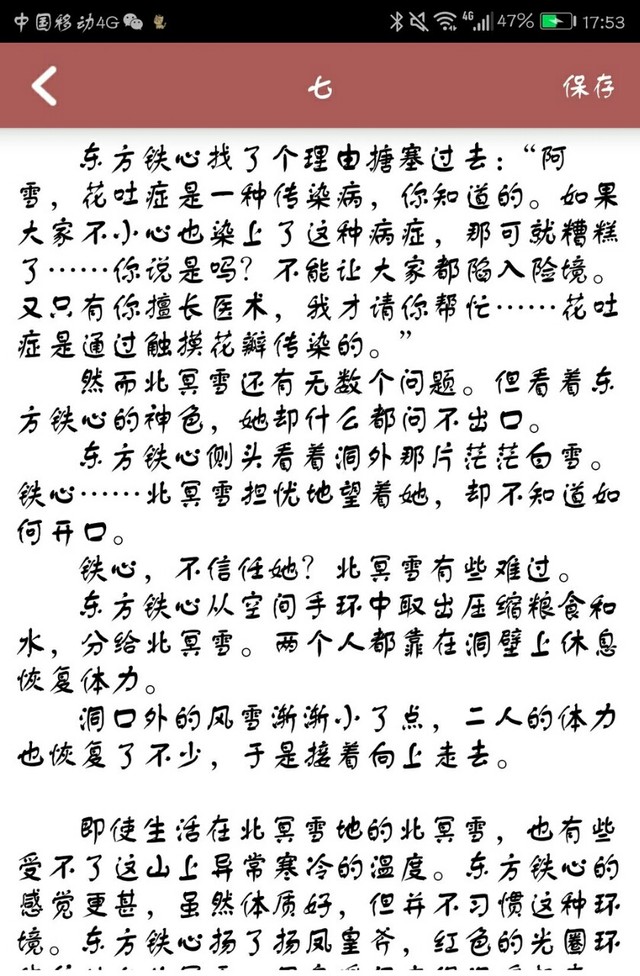 中国移动4G 4G 47% 17:53
七 保存
东方铁心找了个理由搪塞过去：“阿
雪，花吐症是一种传染病，你知道的。如果
大家不小心也染上了这种病症，那可就糟糕
了……你说是吗？不能让大家都陷入险境。
又只有你擅长医术，我才请你帮忙……花吐
症是通过触摸花瓣传染的。”
然而北冥雪还有无数个问题。但看着东
方铁心的神色，她却什么都问不出口。
东方铁心侧头看着洞外那片茫茫白雪。
铁心……北冥雪担忧地望着她，却不知道如
何开口。
铁心，不信任她？北冥雪有些难过。
东方铁心从空间手环中取出压缩粮食和
水，分给北冥雪。两个人都靠在洞壁上休息
恢复体力。
洞口外的风雪渐渐小了点，二人的体力
也恢复了不少，于是接着向上走去。
即使生活在北冥雪地的北冥雪，也有些
受不了这山上异常寒冷的温度。东方铁心的
感觉更甚，虽然体质好，但并不习惯这种环
境。东方铁心扬了扬凤皇斧，红色的光圈环